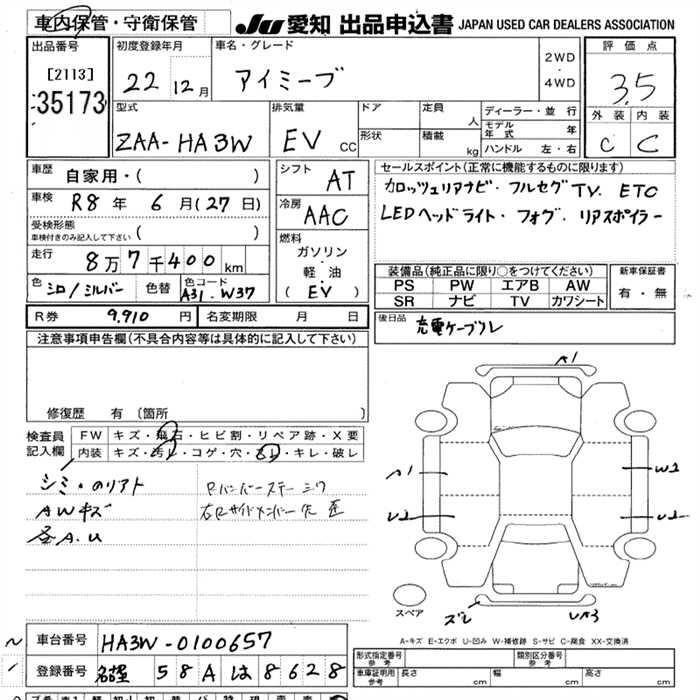 車内保管・守衛保管
JU 愛知 出品申込書 JAPAN USED CAR DEALERS ASSOCIATION
出品番号
[2113]
35173
初度登録年月
22年 12月
車名・グレード
アイミーブ
2WD
・
4WD
評価点
3.5
外装 内装
C C
型式
ZAA-HA3W
排気量
EV CC
ドア
形状
定員 人
積載 kg
ディーラー・並行
モデル年式 年
ハンドル 左・右
車歴 自家用・( )
車検 R8年 6月(27日)
受検形態
車検付きのみ記入して下さい ( )
走行 8万7千400km
色 シロ/シルバー 色替
色コード
A31・W37
シフト AT
冷房 AAC
燃料
ガソリン
・
軽油
(EV)
セールスポイント(正常に機能するものに限ります)
カロッツェリアナビ・フルセグTV. ETC
LEDヘッドライト・フォグ・リアスポイラー
装備品(純正品に限り○をつけてください)
PS PW エアB AW
SR ナビ TV カワシート
新車保証書
有・無
R券 9.910円 名変期限 月 日
後日品 充電ケーブル
注意事項申告欄(不具合内容等は具体的に記入して下さい)
修復歴 有 〔箇所 〕
検査員
記入欄
FW キズ・飛石・ヒビ割・リペア跡・X要
内装 キズ・汚レ・コゲ・穴・スレ・キレ・破レ
シミ・のリアト
AWキズ
各A.U
A1
A1
U2
W2
ズレ
スペア
A-キズ E-エクボ U-凹み W-補修跡 S-サビ C-腐食 XX-交換済
車台番号 HA3W-0100657
登録番号 名古屋 58A は 8628
形式指定番号
参考
類別区分番号
参考
車庫証明用
参考
長さ cm 幅 cm 高さ cm